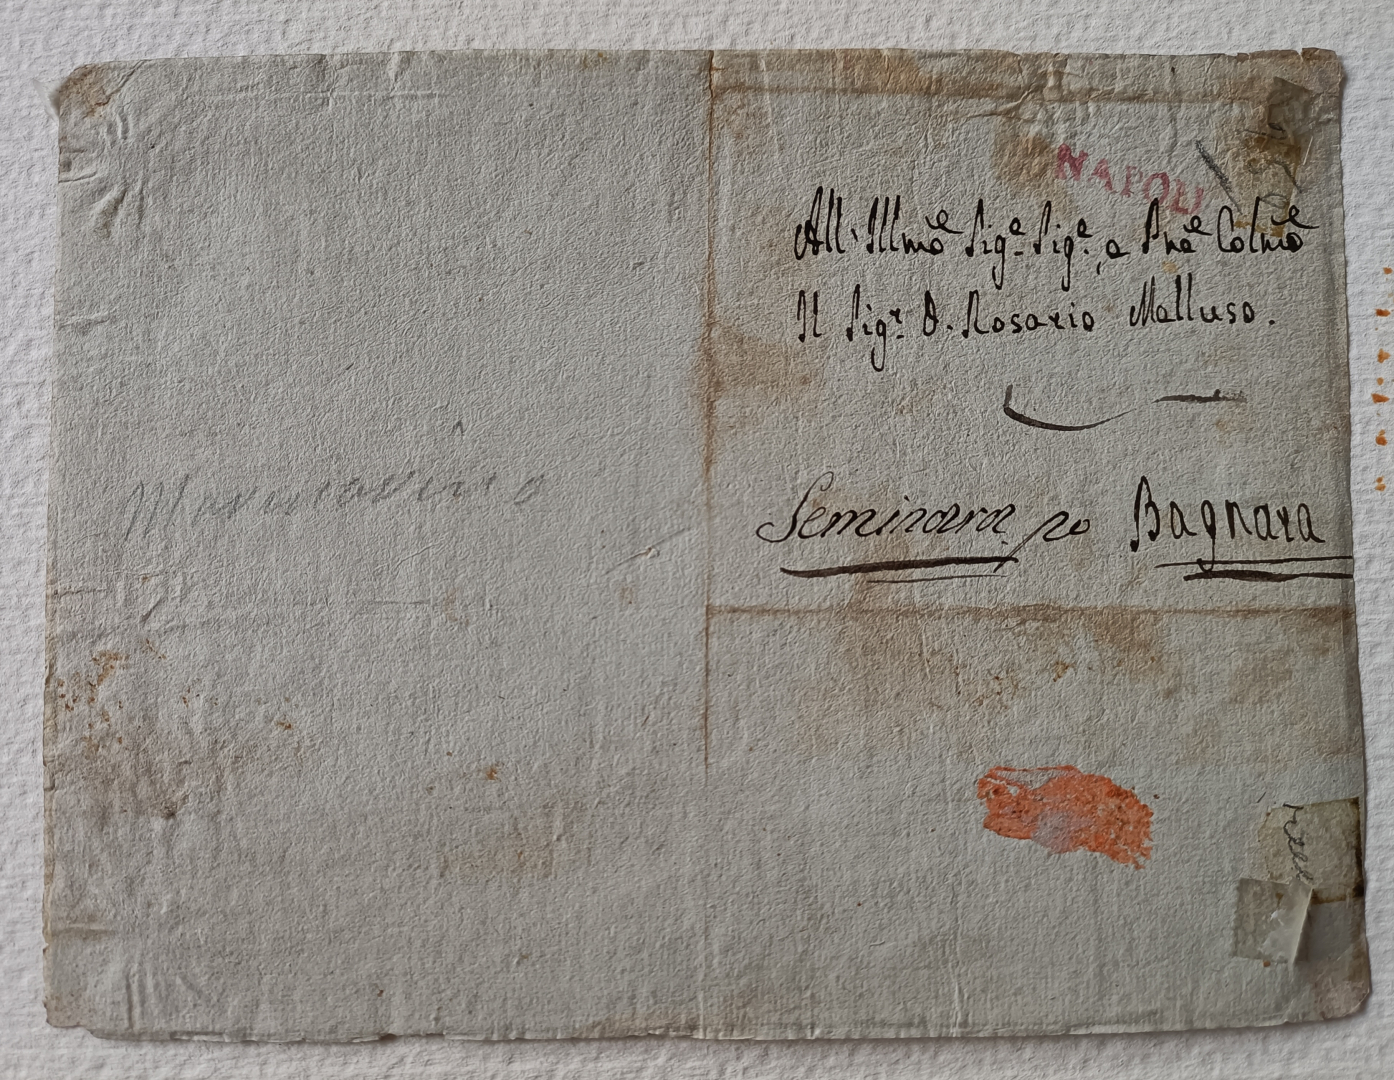 NAPOLI
All' Illmo Sige Sige, e Pne Colmo
Il Sigr D. Rosario Malluso.
Seminara po Bagnara